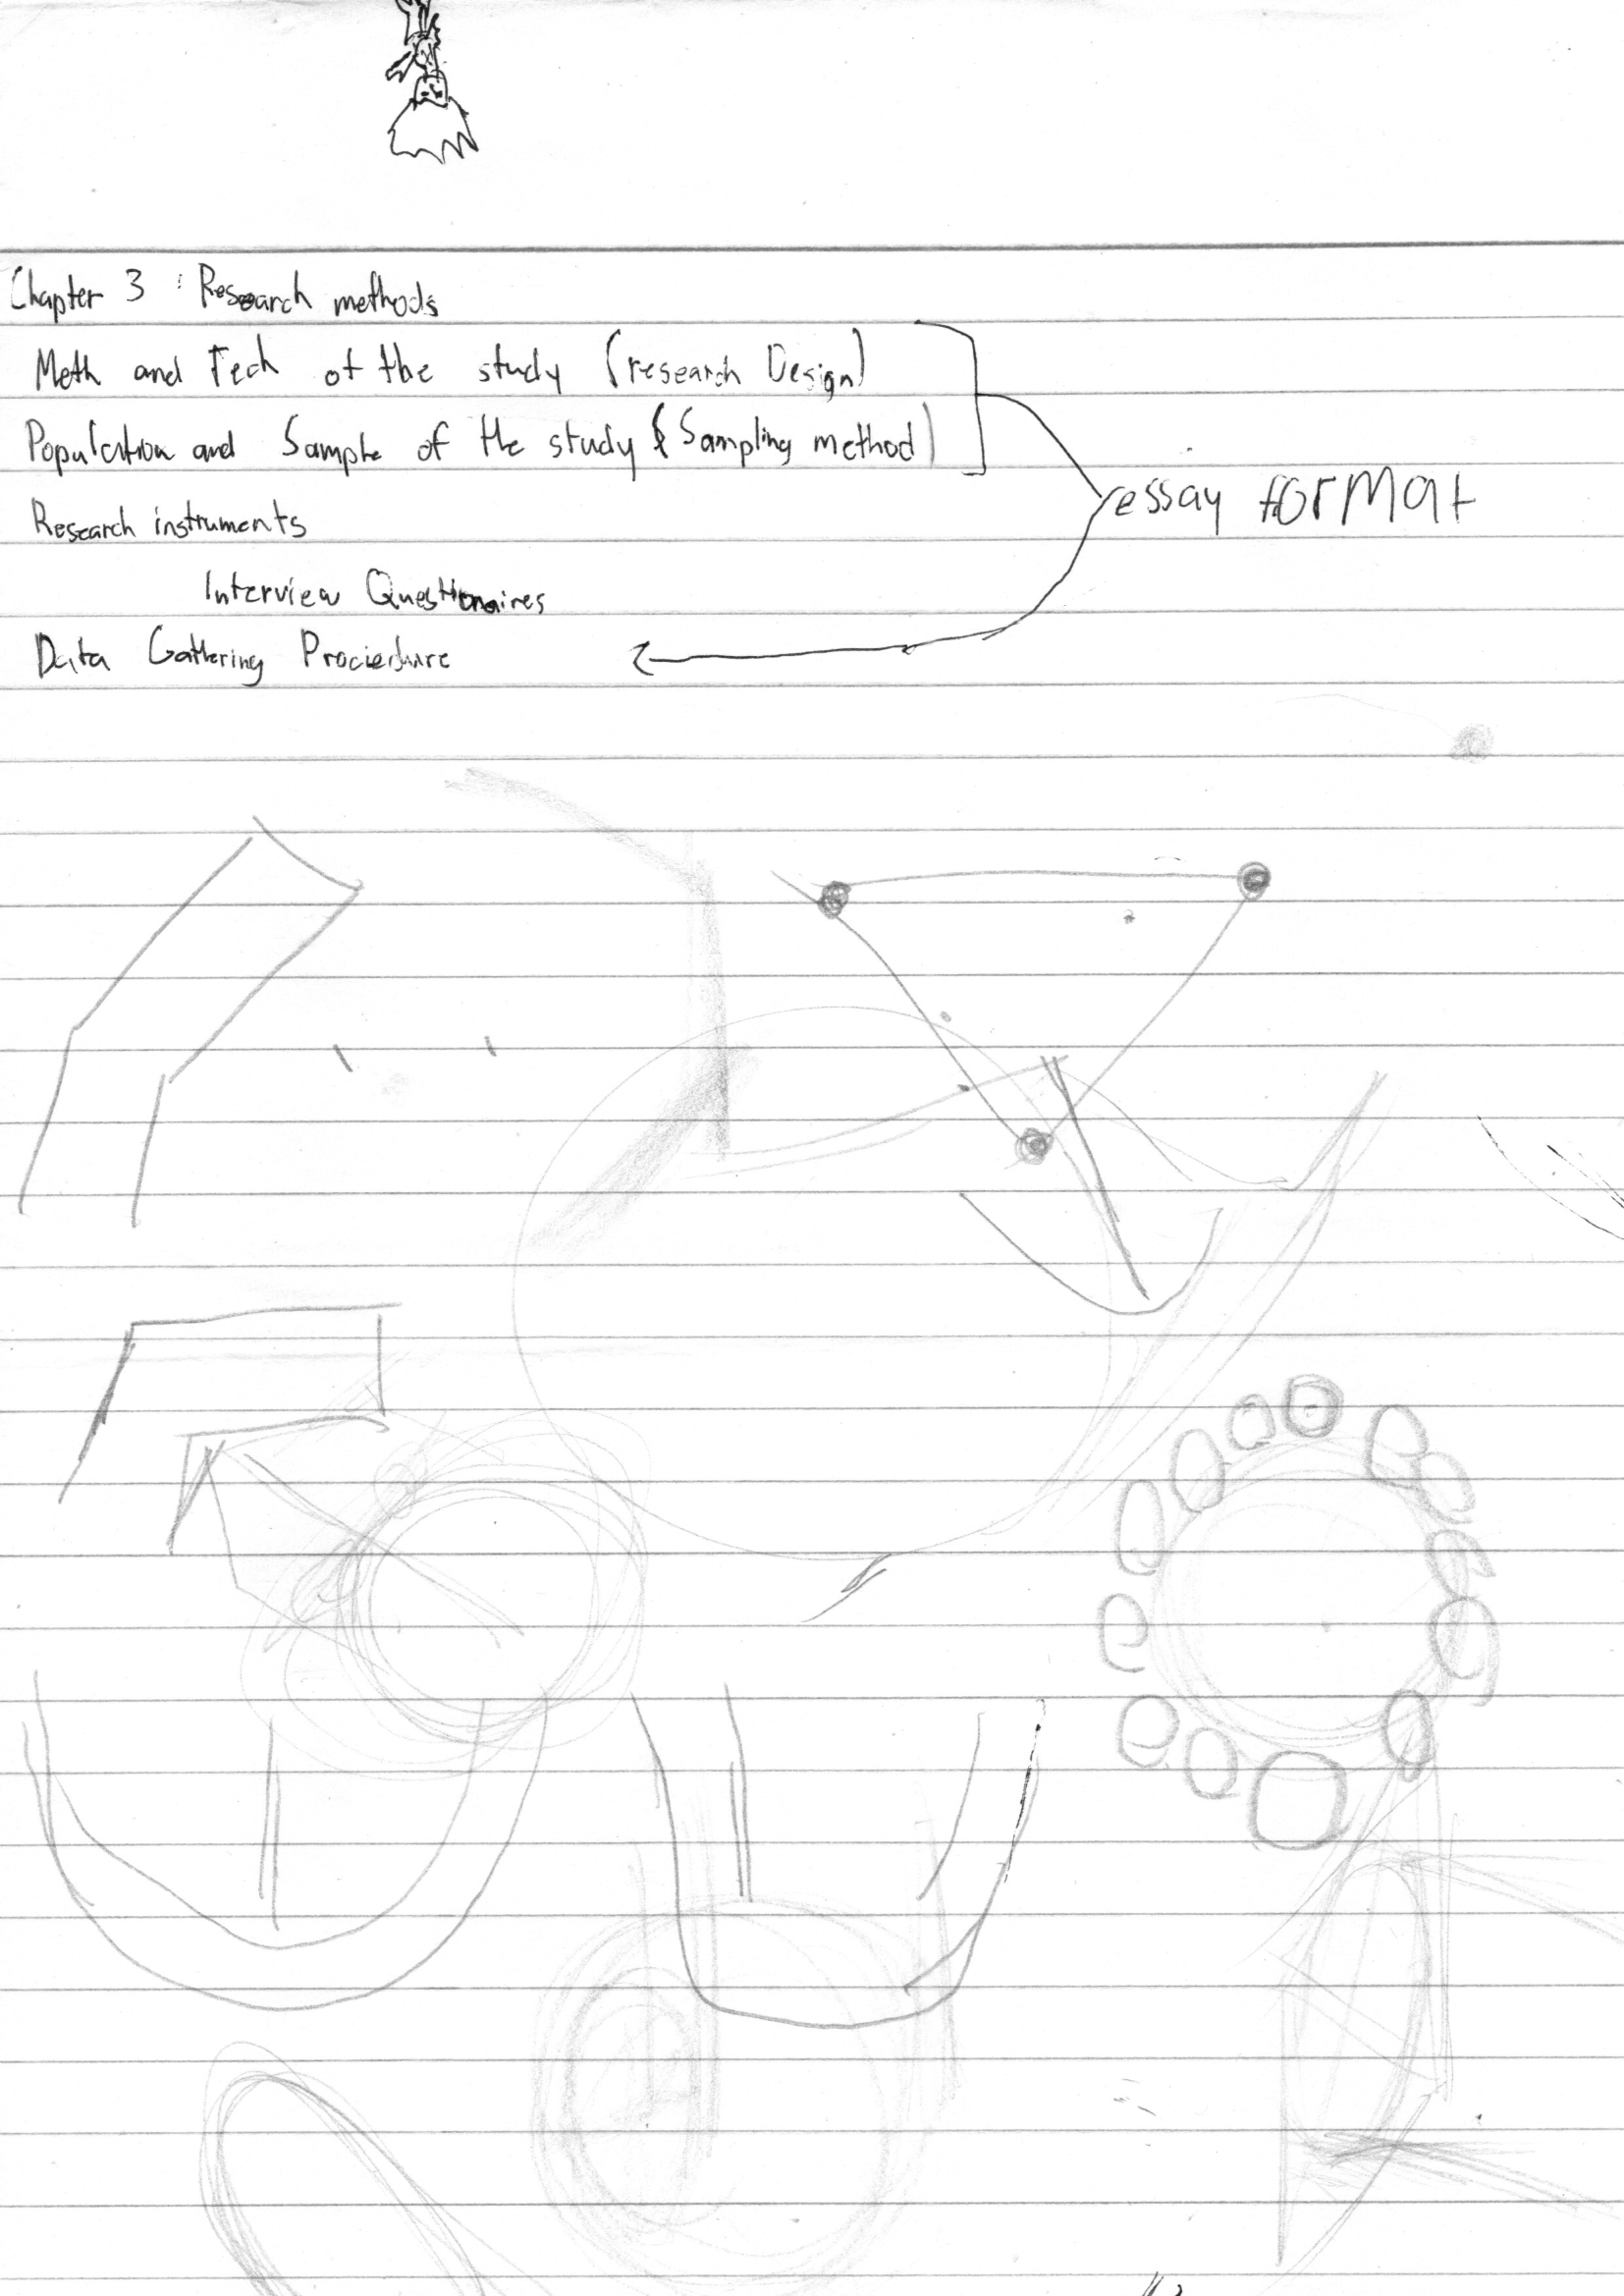 Chapter 3 : Research methods
Meth and Tech of the study (research Design)
Population and Sample of the study (Sampling method)
essay forMat
Research instruments
Interview Questionaires
Data Gathering Prociedure